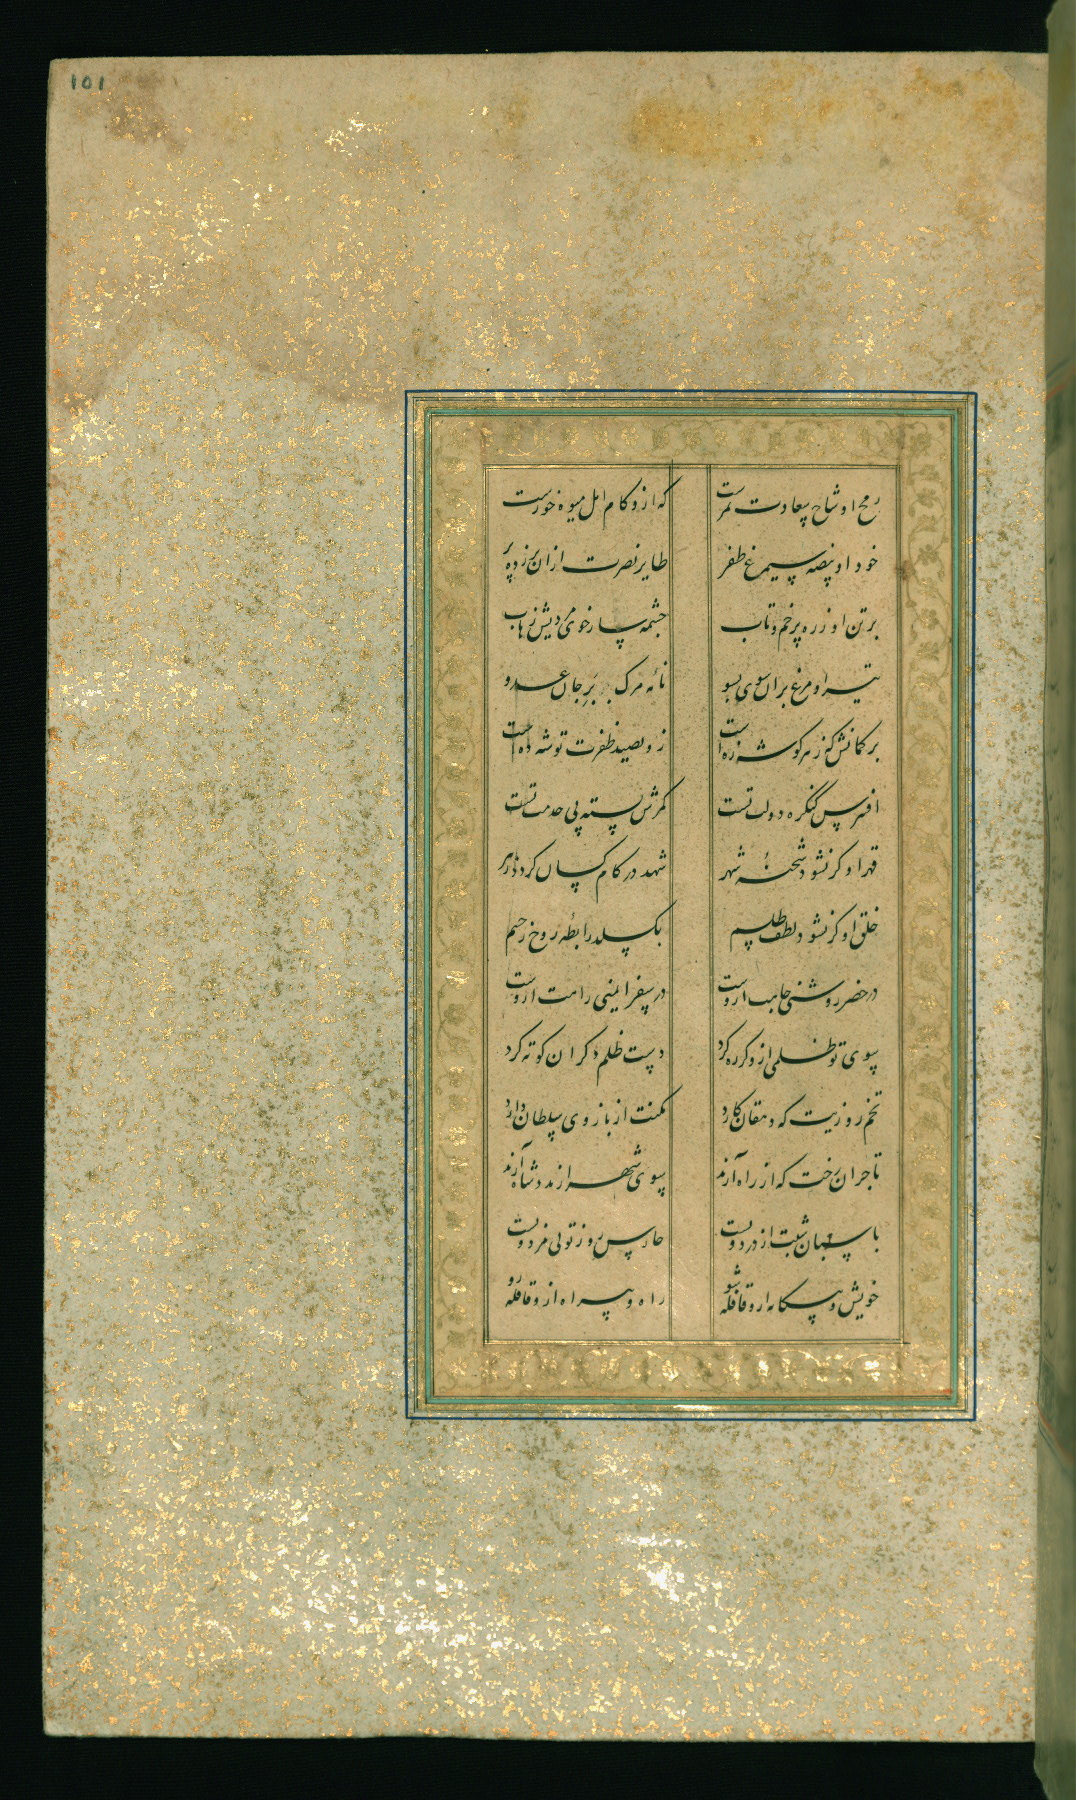 ۱۵۱
رمح او شاخ سعادت ثمرست که ازو کام امل میوه خورست
خود او بیضه سیمرغ ظفر طایر نصرت ازان برزده پر
بر تن او زره پر خم و تاب چشمه سار
تیر او مرغ بران سوی بسو نامه مرگ بر جان عدو
بر کمانش که ز هر گوشه زه است زو بصید ظفرت توشه ده است
افسرس کنگره دولت تست کمرش بسته پی خدمت تست
قهر او گر نشود شحنه شهر شهد در کام کسان گردد زهر
خلق او گر نشود لطف طلسم بگسلد رابطه روح ز جسم
در حضر روشنی جانت ازوست در سفر ایمنی راهت ازوست
سوی تو ظلمی ازو گر ره کرد دست ظلم دگران کوته کرد
تخم روزیت که دهقان کارد مکنت از بازوی سلطان دارد
تاجران رخت که از راه آرند سوی شهر از مدد شاه آرند
پاسبان شبت از درد ویست حارس روز تویی مزد ویست
خویش و بیگانه ازو قافله شو راه و بیراه ازو قافله رو